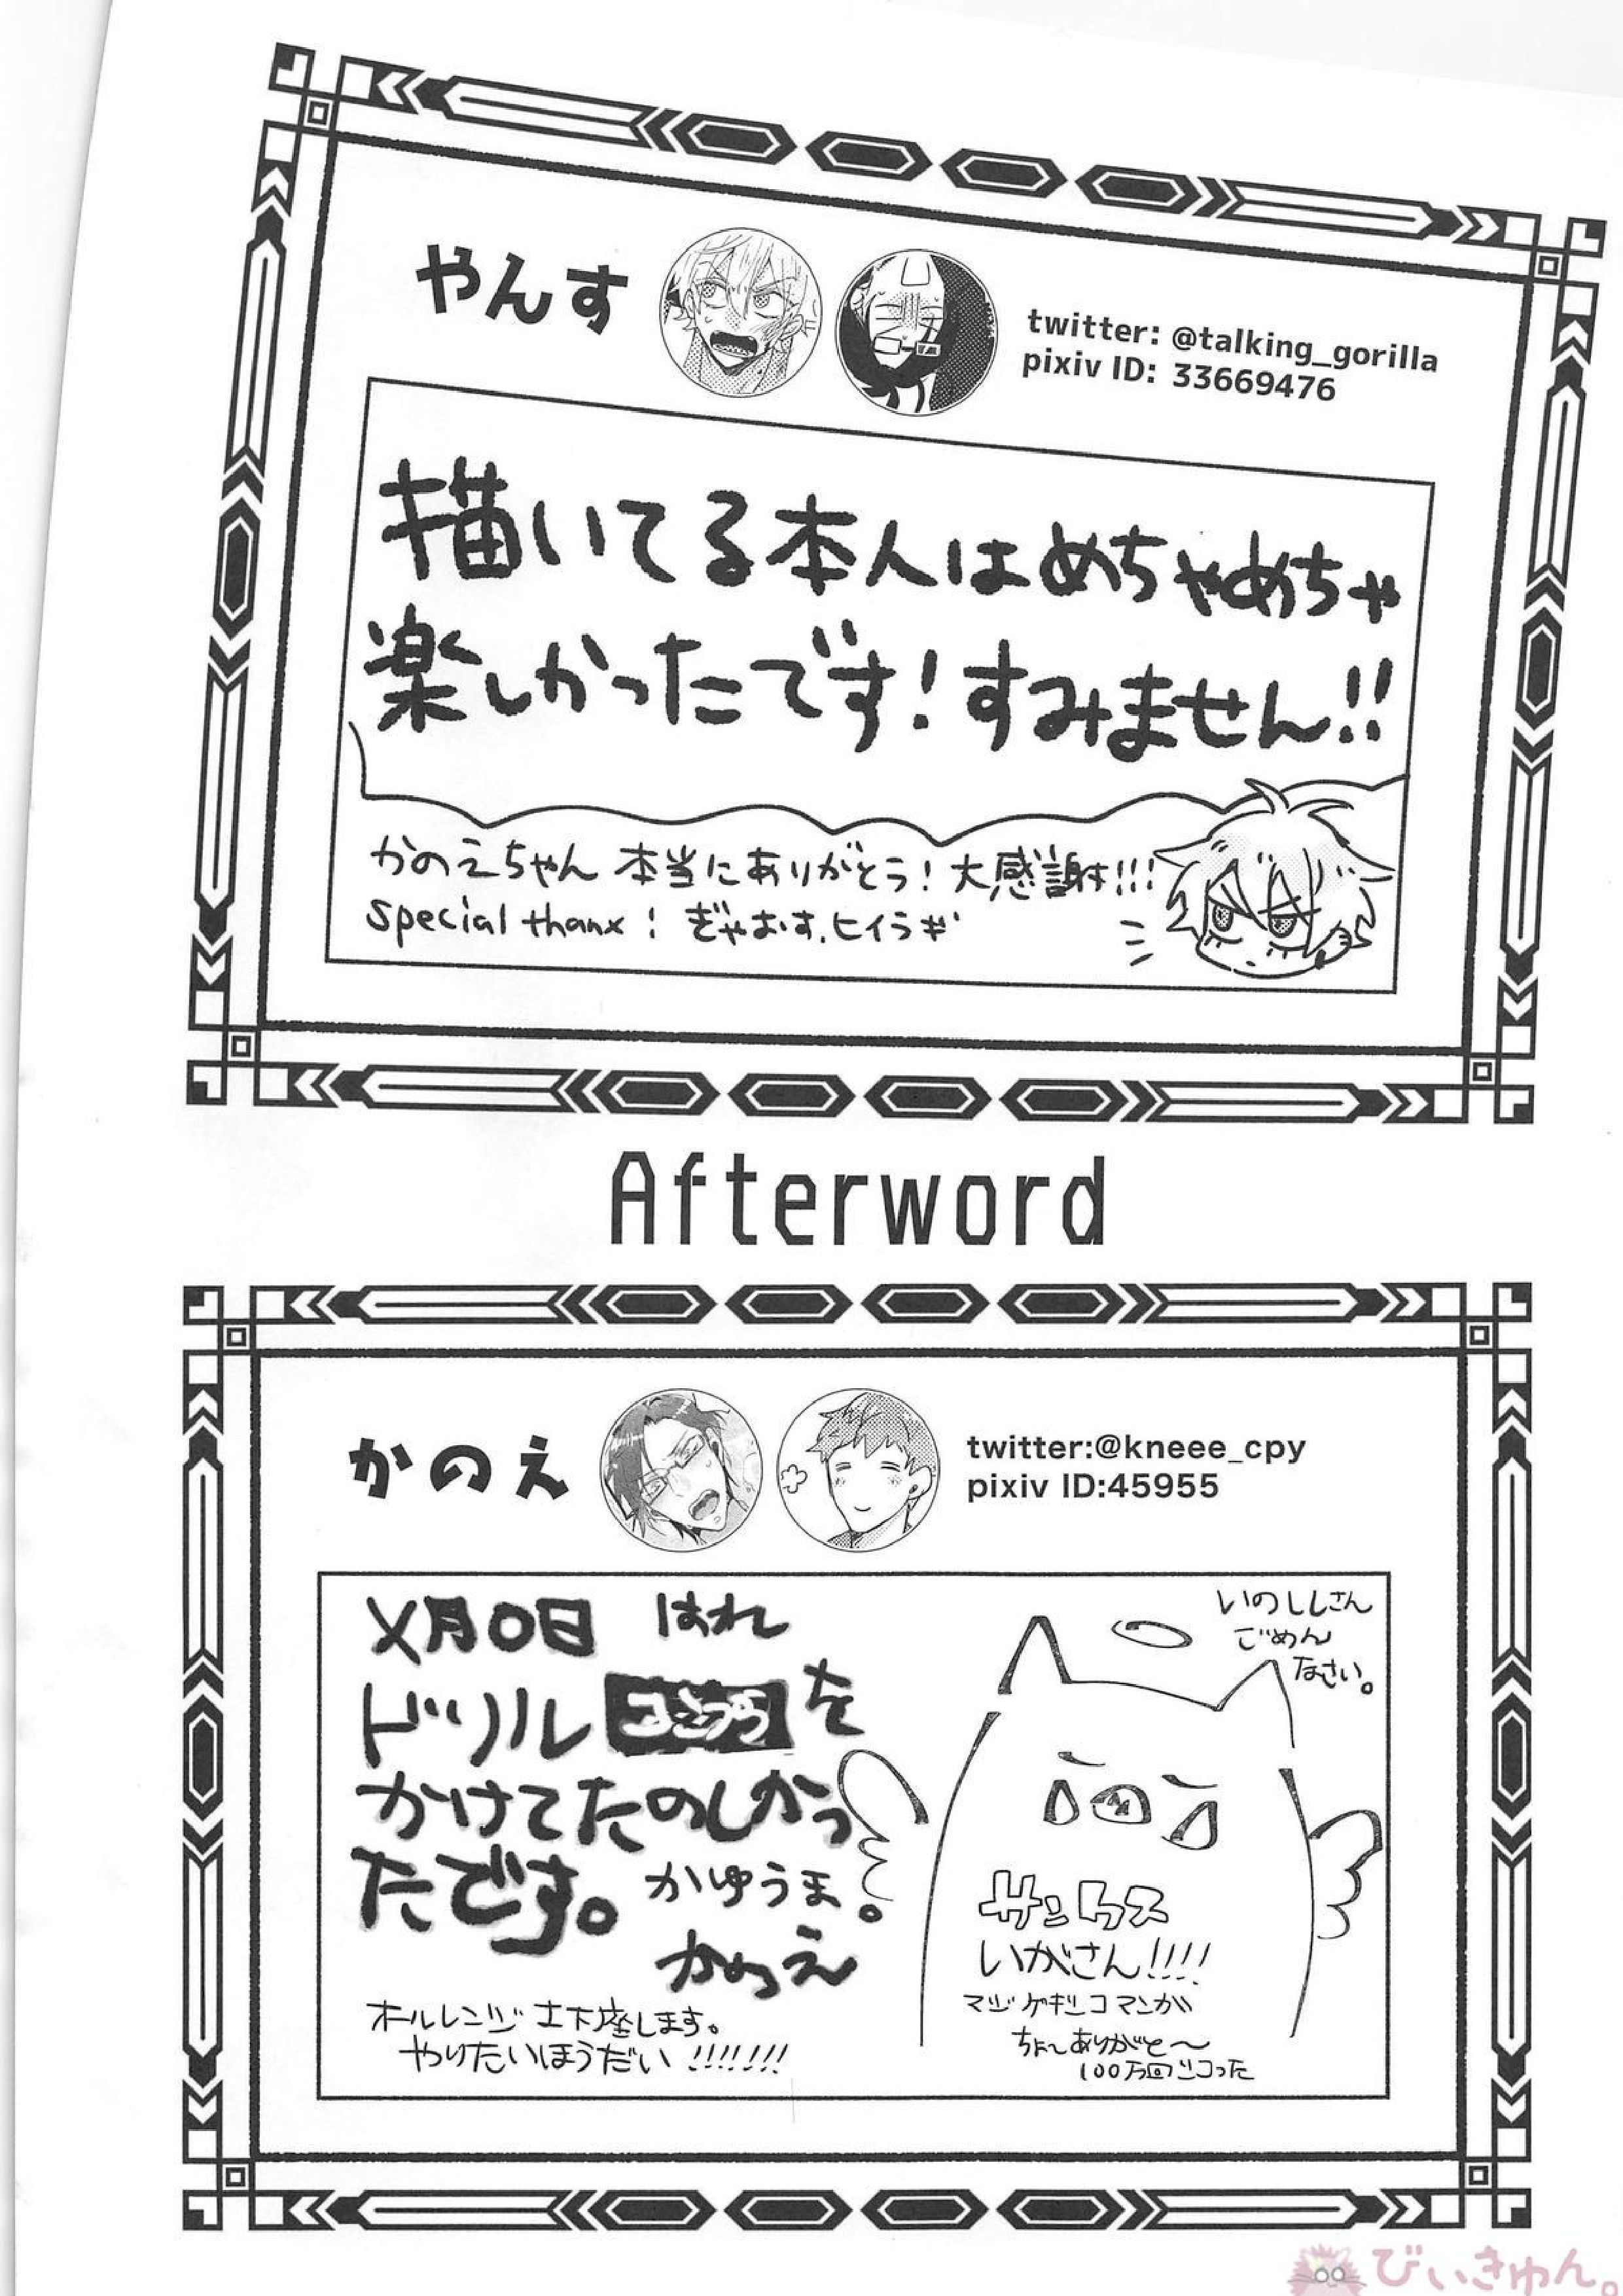 やんす
twitter: @talking_gorilla
pixiv ID: 33669476
描いてる本人はめちゃめちゃ
楽しかったです!すみません!!
かのえちゃん 本当にありがとう!大感謝!!!
special thanx! ぎゃおす、ヒイラギ
Afterword
かのえ
twitter:@kneee_cpy
pixiv ID:45955
いのししさん
ごめん
なさい。
X月〇日 はれ
ドリル を
かけてたのしかっ
たです。 かゆうま。
かのえ
オールレンジ土下座します。
やりたいほうだい!!!!!!!
サンクス
いがさん!!!!
マジゲキシコマンガ
ちょ〜ありがと〜
100万回シコった
びいきゅん。